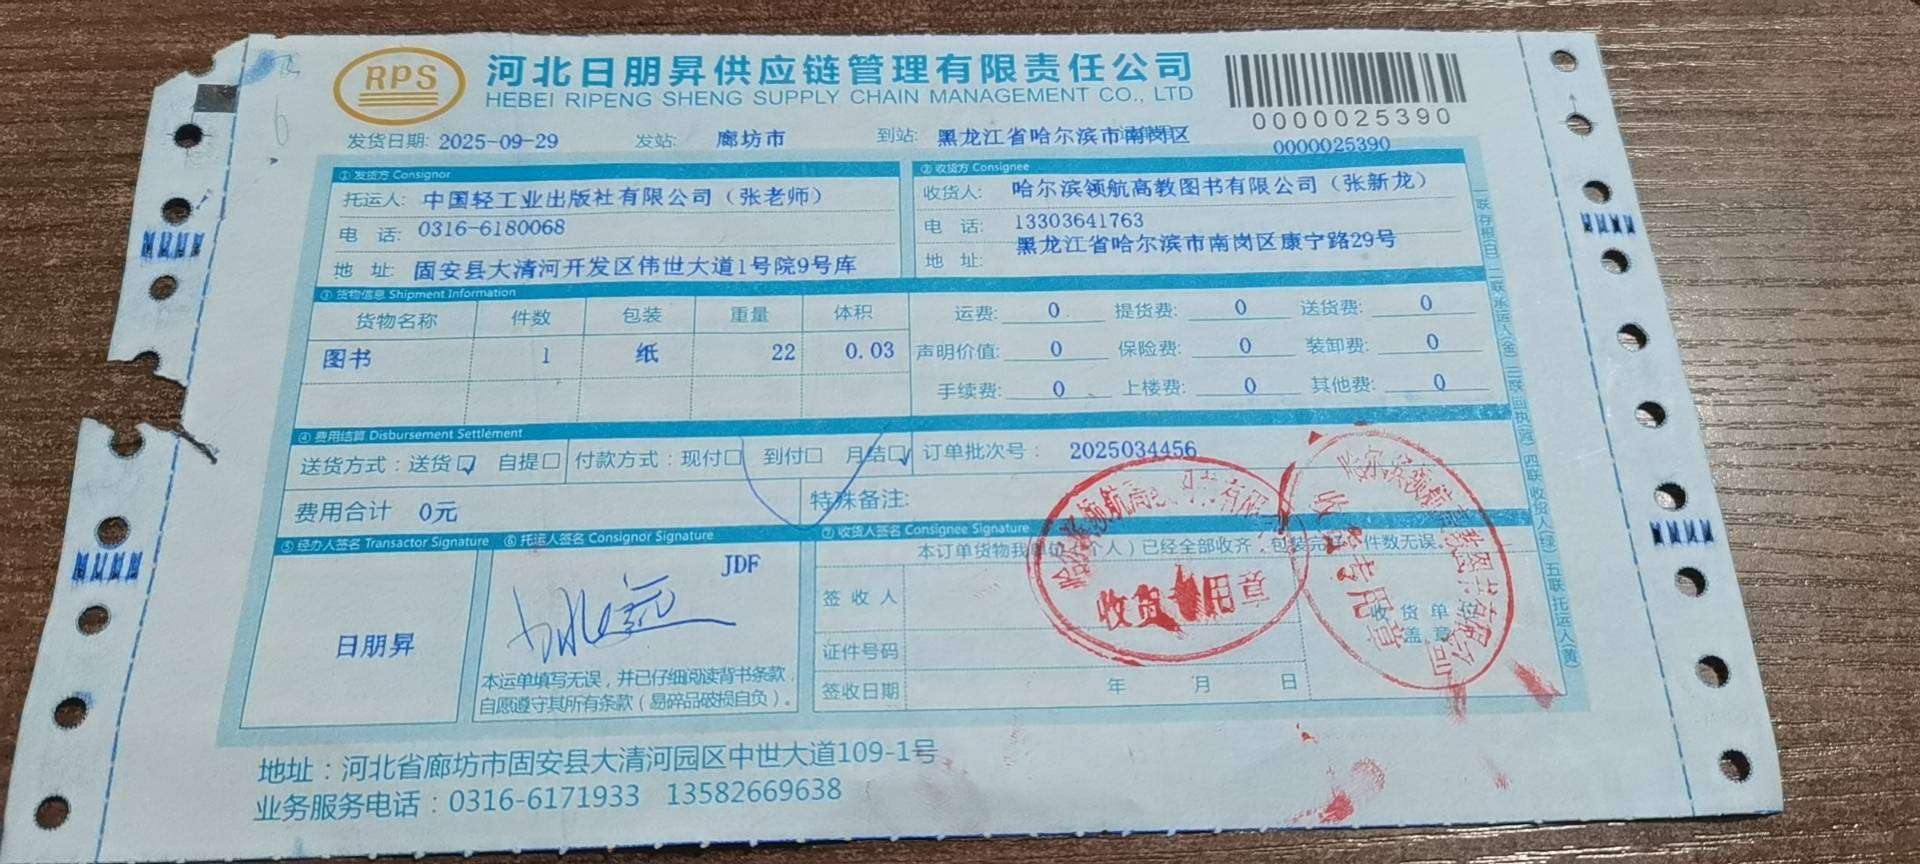 RPS
河北日朋昇供应链管理有限责任公司
HEBEI RIPENG SHENG SUPPLY CHAIN MANAGEMENT CO., LTD
0000025390
发货日期: 2025-09-29 发站: 廊坊市 到站: 黑龙江省哈尔滨市南岗区 0000025390
① 发货方 Consignor
托运人: 中国轻工业出版社有限公司（张老师）
电 话: 0316-6180068
地 址: 固安县大清河开发区伟世大道1号院9号库
② 收货方 Consignee
收货人: 哈尔滨领航高教图书有限公司（张新龙）
电 话: 13303641763
地 址: 黑龙江省哈尔滨市南岗区康宁路29号
③ 货物信息 Shipment Information
货物名称 件数 包装 重量 体积
图书 1 纸 22 0.03
运费: 0 提货费: 0 送货费: 0
声明价值: 0 保险费: 0 装卸费: 0
手续费: 0 上楼费: 0 其他费: 0
④ 费用结算 Disbursement Settlement
送货方式：送货☑ 自提□ 付款方式：现付□ 到付□ 月结☑ 订单批次号： 2025034456
费用合计 0元 特殊备注:
⑤ 经办人签名 Transactor Signature
日朋昇
⑥ 托运人签名 Consignor Signature
JDF
本运单填写无误，并已仔细阅读背书条款，
自愿遵守其所有条款（易碎品破损自负）。
⑦ 收货人签名 Consignee Signature
本订单货物我单位（个人）已经全部收齐，包装完好，件数无误。
签 收 人
证件号码
签收日期 年 月 日
收 货 单 位
盖 章
收货专用章
收货专用章
一联存根(白) 二联承运人(金) 三联回执(蓝) 四联收货人(绿) 五联托运人(黄)
地址：河北省廊坊市固安县大清河园区中世大道109-1号
业务服务电话：0316-6171933 13582669638